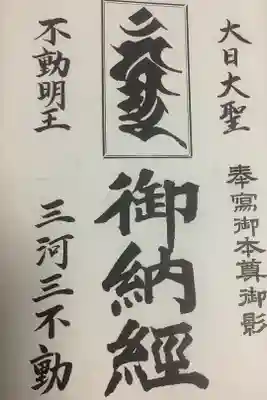 大日大聖
不動明王
奉寫御本尊御影
御納經
三河三不動